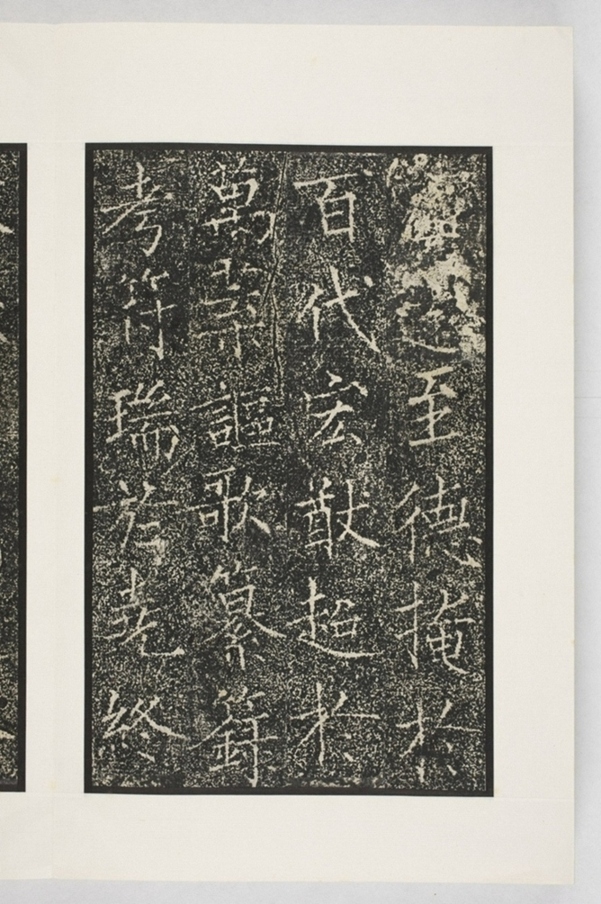 之至德掩於
百代宏猷超於
萬謳歌纂籙
考符瑞於堯終